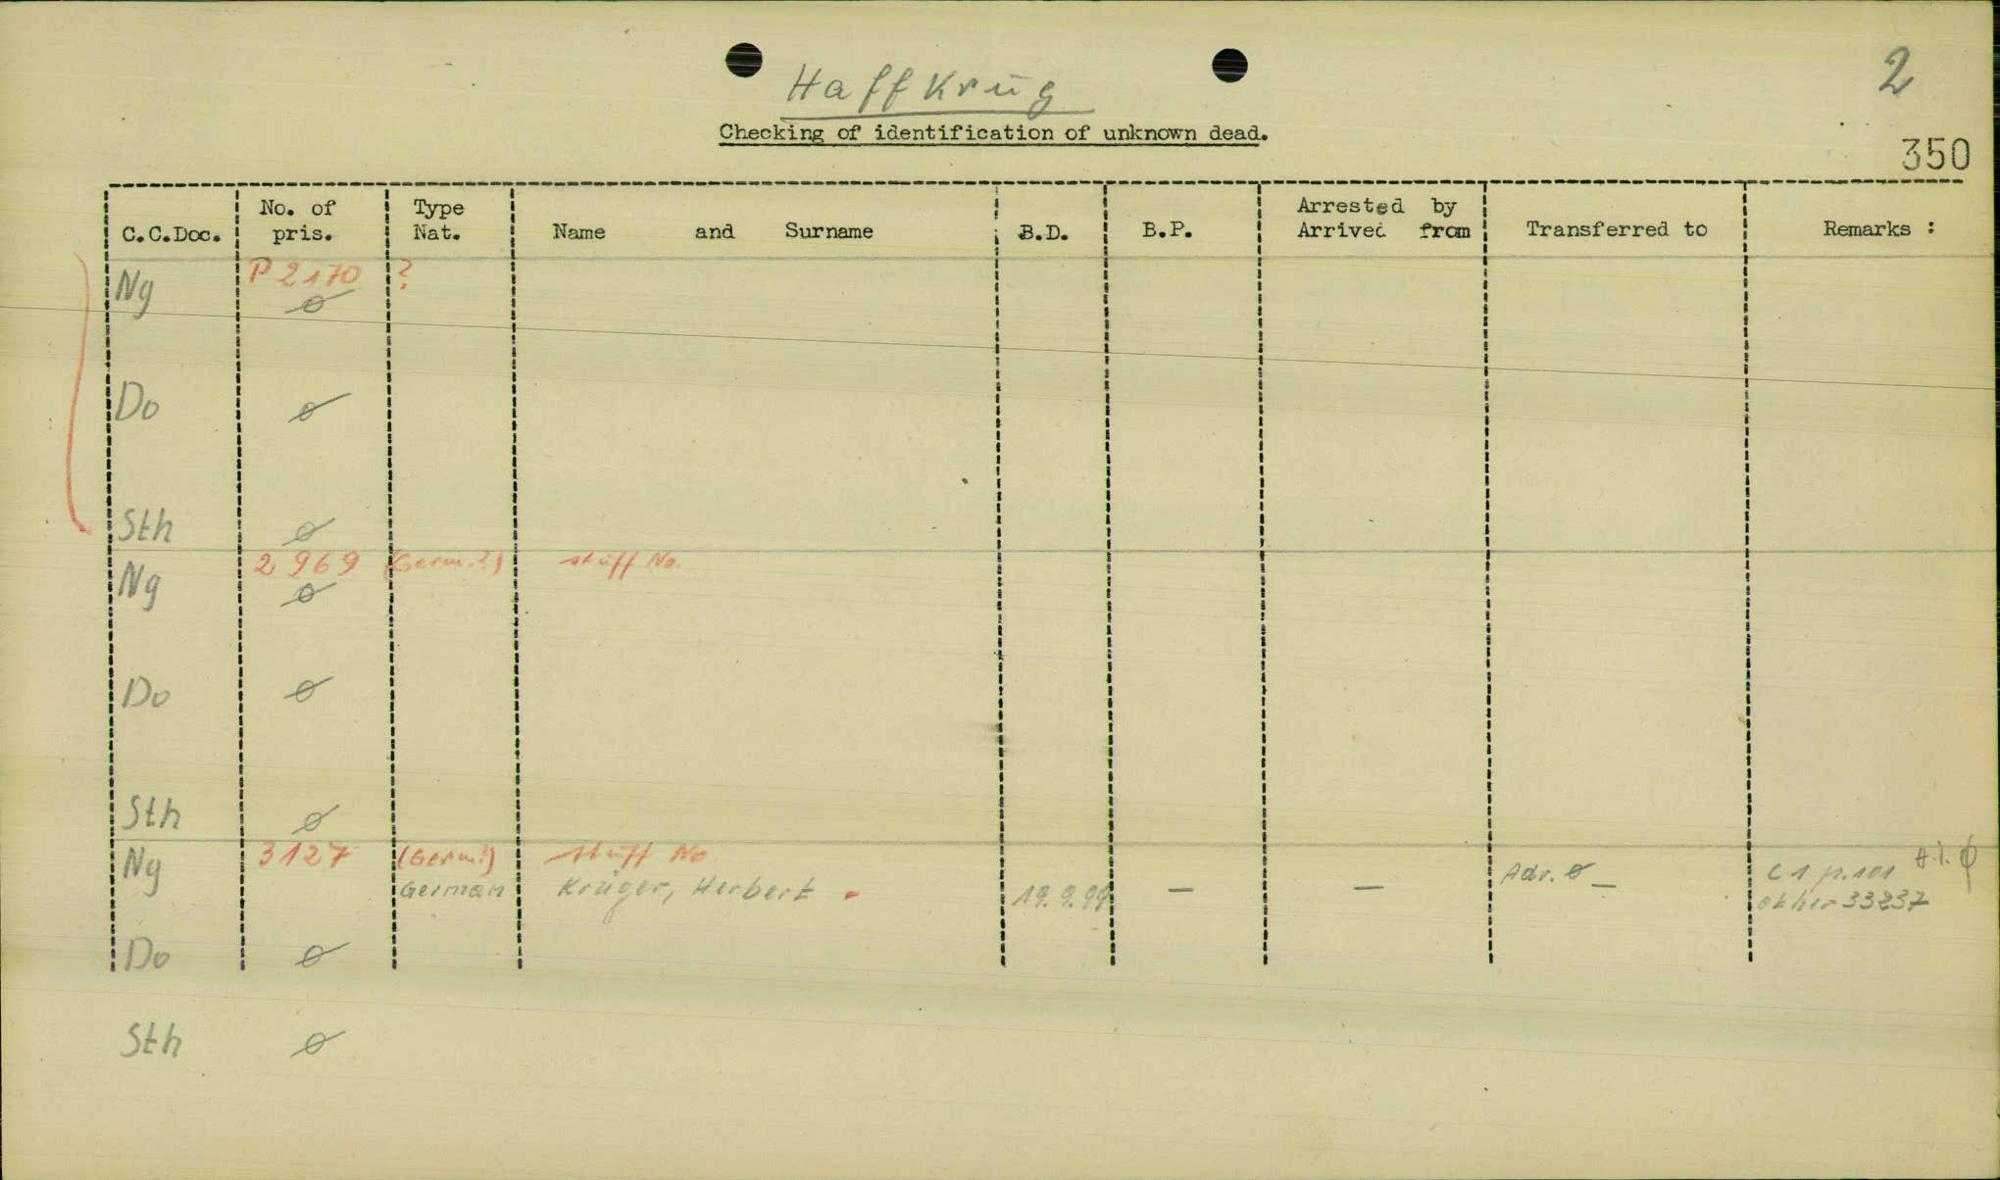 2
Haffkrüg
Checking of identification of unknown dead.
350
C.C.Doc. No. of pris. Type Nat. Name and Surname B.D. B.P. Arrested by Arrived from Transferred to Remarks :
Ng P 2170 ?
ø
Do ø
Sth ø
Ng 2969 (Germ.?) stuff No.
ø
Do ø
Sth ø
Ng 3127 (Germ?) stuff No
German Krüger, Herbert 19.9.99 — — Adr. ø — C 1 p.101 H.I. ϕ
other 33237
Do ø
Sth ø